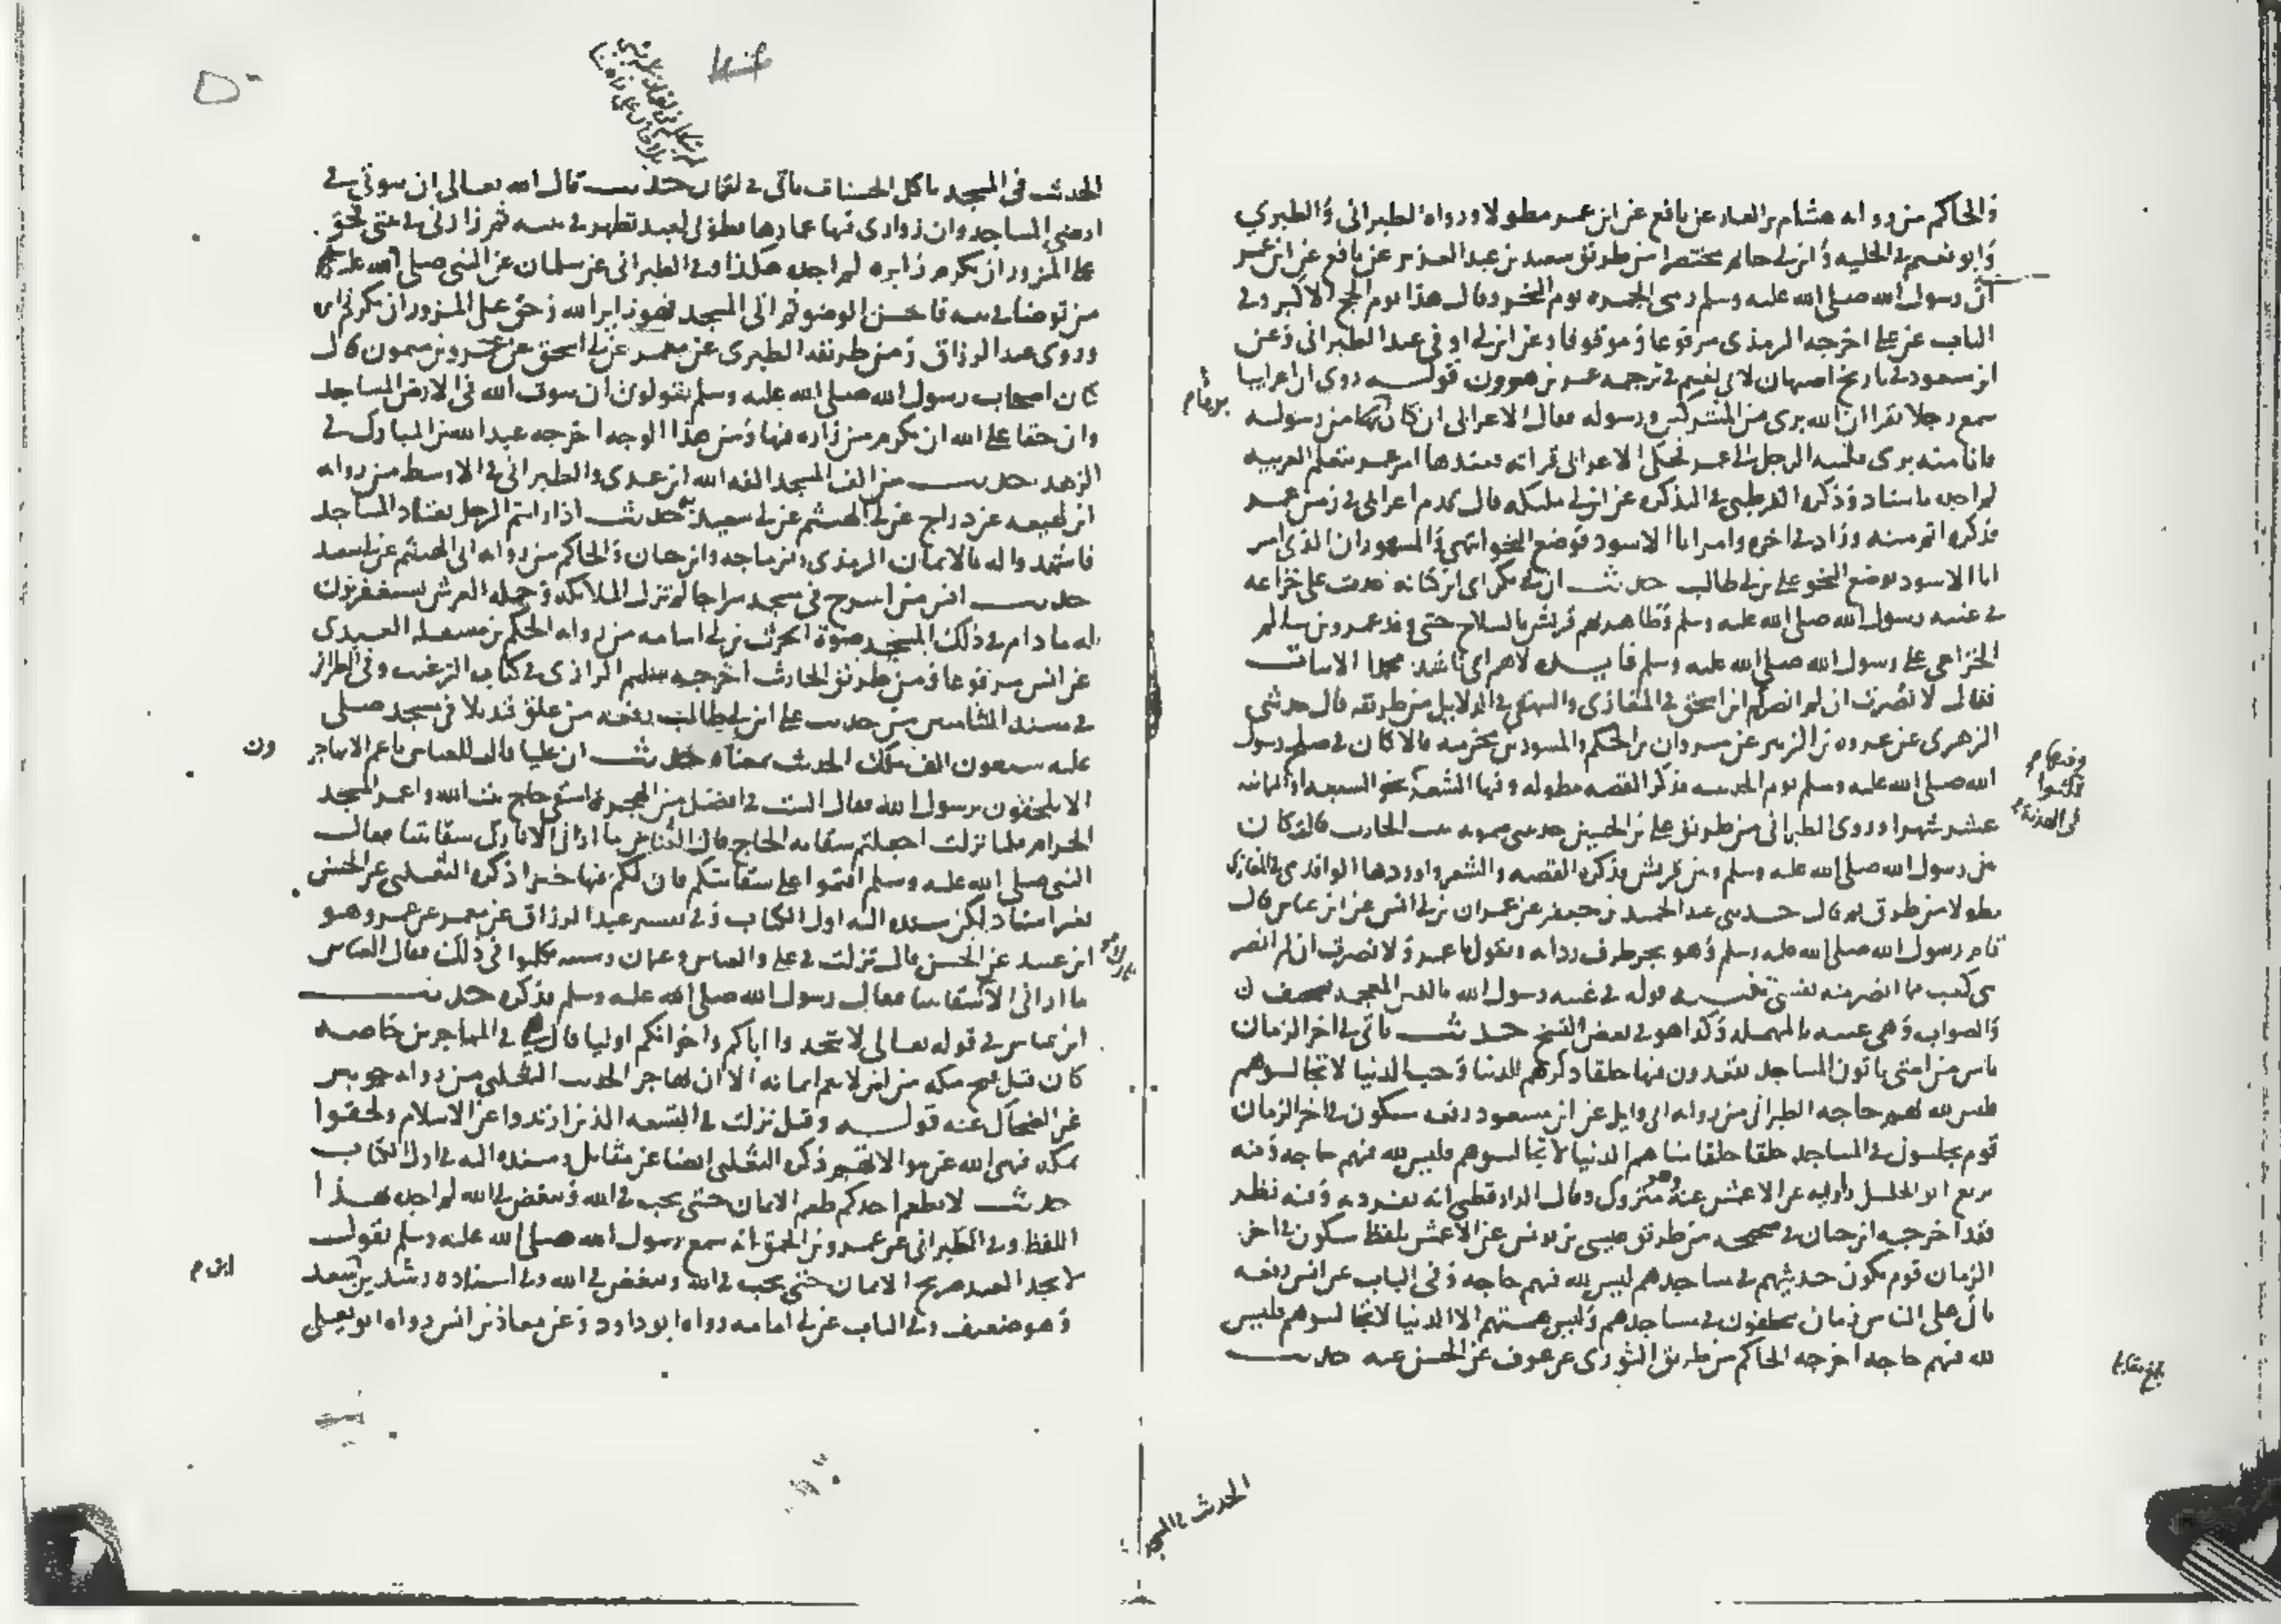 والحاكم من رواية هشام بن الغاز عن نافع عن ابن عمر مطولا ورواه الطبراني والطبري
وابو نعيم في الحلية وابن ابي حاتم مختصرا من طريق سعيد بن عبد العزيز عن نافع عن ابن عمر
ان رسول الله صلى الله عليه وسلم رمى الجمرة يوم النحر وقال هذا يوم الحج الاكبر وفي
الباب عن علي اخرجه الترمذي مرفوعا وموقوفا وعن ابن ابي اوفى عند الطبراني وعن
ابن مسعود في تاريخ اصبهان لابي نعيم في ترجمة عمر بن هرون قوله روى ان اعرابيا
سمع رجلا يقرا ان الله بريء من المشركين ورسوله فقال الاعرابي ان كان بريا من رسوله
فانا منه بريء فلببه الرجل الى عمر فحكى الاعرابي قراته فعندها امر عمر بتعلم العربية
لم اجده باسناد وذكره القرطبي في التذكرة عن ابن ابي مليكة قال قدم اعرابي في زمن عمر
فذكره اتم منه وزاد في اخره وامر ابا الاسود فوضع النحو انتهى والمشهور ان الذي امر
ابا الاسود بوضع النحو علي بن ابي طالب حديث ان بني بكر اي ابن كنانة عدت على خزاعة
في غيبة رسول الله صلى الله عليه وسلم وظاهرتهم قريش بالسلاح حتى وفد عمرو بن سالم
الخزاعي على رسول الله صلى الله عليه وسلم فانشده لاهم اني ناشد محمدا الابيات
فقال لا نصرت ان لم انصركم ابن اسحق في المغازي والبيهقي في الدلايل من طريقه قال حدثني
الزهري عن عروة بن الزبير عن مروان بن الحكم والمسور بن مخرمة قالا كان في صلح رسول
الله صلى الله عليه وسلم يوم الحديبية فذكر القصة مطولة وفيها الشعر نحو السبعة او الثمانية
عشر شهرا وروى الطبراني من طريق علي بن الحسين حدثتني ميمونة بنت الحارث قالت كان
من رسول الله صلى الله عليه وسلم وبين قريش فذكره القصة والشعر واوردها الواقدي في المغازي
مطولا من طرق قال حدثني عبد الحميد بن جعفر عن عمران بن ابي انس عن ابن عباس قال
قام رسول الله صلى الله عليه وسلم وهو يجر طرف ردائه ويقول يا عمرو لا نصرت ان لم انصر
بني كعب مما انصر منه نفسي تنبيه قوله في غيبة رسول الله بالغين المعجمة تصحيف
والصواب وهي عيبة بالمهملة وكذا هو في بعض النسخ حديث ياتي في اخر الزمان
ناس من امتي ياتون المساجد يقعدون فيها حلقا ذكرهم للدنيا وحب الدنيا لا تجالسوهم
فليس لله بهم حاجة الطبراني من رواية ابي وايل عن ابن مسعود رفعه سيكون في اخر الزمان
قوم يجلسون في المساجد حلقا حلقا مناهم الدنيا لا تجالسوهم فليس لله فيهم حاجة وفيه
بزيع ابو الخليل راويه عن الاعمش عنه وهو متروك وقال الدارقطني انه تفرد به وفيه نظر
فقد اخرجه ابن حبان في صحيحه من طريق عيسى بن يونس عن الاعمش بلفظ سيكون في اخر
الزمان قوم يكون حديثهم في مساجدهم ليس لله فيهم حاجة وفي الباب عن انس رفعه
ياتي على الناس زمان يتحلقون في مساجدهم وليس همتهم الا الدنيا لا تجالسوهم فليس
لله فيهم حاجة اخرجه الحاكم من طريق الثوري عن عوف عن الحسن عنه حديث
بلغ مقابلة
الحديث في المسجد
الحديث في المسجد ياكل الحسنات ياتي في لقمان حديث قال الله تعالى ان بيوتي في
ارضي المساجد وان زواري فيها عمارها فطوبى لعبد تطهر في بيته ثم زارني في بيتي فحق
على المزور ان يكرم زايره لم اجده هكذا وفي الطبراني عن سلمان عن النبي صلى الله عليه وسلم
من توضا في بيته فاحسن الوضو ثم اتى المسجد فهو زاير الله وحق على المزور ان يكرم الزاير
وروى عبد الرزاق ومن طريقه الطبري عن معمر عن ابي اسحق عن عمرو بن ميمون قال
كان اصحاب رسول الله صلى الله عليه وسلم يقولون ان بيوت الله في الارض المساجد
وان حقا على الله ان يكرم من زاره فيها ومن هذا الوجه اخرجه عبد الله بن المبارك في
الزهد حديث من الف المسجد الفه الله ابن عدي والطبراني في الاوسط من رواية
ابن لهيعة عن دراج عن ابي الهيثم عن ابي سعيد به حديث اذا رايتم الرجل يعتاد المساجد
فاشهدوا له بالايمان الترمذي وابن ماجه وابن حبان والحاكم من رواية ابي الهيثم عن ابي سعيد
حديث انس من اسرج في مسجد سراجا لم تزل الملائكة وحملة العرش يستغفرون
له ما دام في ذلك المسجد ضوؤه الحرث بن ابي اسامة من رواية الحكم بن مسقلة العبدي
عن انس مرفوعا ومن طريق الحارث اخرجه سليم الرازي في كتاب الترغيب وفي الطبراني
في مسند الشاميين من حديث علي ابن ابي طالب رفعه من علق قنديلا في مسجد صلى
عليه سبعون الف ملك الحديث بمعناه حديث ان عليا قال للعباس يا عم الا تهاجر
الا تلحقون برسول الله فقال الست في افضل من الهجرة استقي حاج بيت الله واعمر المسجد
الحرام فلما نزلت اجعلتم سقاية الحاج قال العباس ما اراني الا تارك سقايتنا فقال
النبي صلى الله عليه وسلم اقيموا على سقايتكم فان لكم فيها خيرا ذكره الثعلبي عن الحسن
بغير اسناد لكن سنده اليه اول الكتاب وفي تفسير عبد الرزاق عن معمر عن عمرو وهو
ابن عبيد عن الحسن قال نزلت في علي والعباس وعثمان وشيبة تكلموا في ذلك فقال العباس
ما اراني الا تارك سقايتنا فقال رسول الله صلى الله عليه وسلم فذكره حديث
ابن عباس في قوله تعالى لا تتخذوا اباكم واخوانكم اوليا قال هي في المهاجرين خاصة
كان قبل فتح مكة من امن لم يتم ايمانه الا ان يهاجر الحديث الثعلبي من رواية جويبر
عن الضحاك عنه قوله وقيل نزلت في التسعة الذين ارتدوا عن الاسلام ولحقوا
بمكة فنهى الله عن موالاتهم ذكره الثعلبي ايضا عن مقاتل وسنده اليه في اول الكتاب
حديث لا يطعم احدكم طعم الايمان حتى يحب في الله ويبغض في الله لم اجده بهذا
اللفظ وفي الطبراني عن عمرو بن الحمق انه سمع رسول الله صلى الله عليه وسلم يقول
لا يجد العبد صريح الايمان حتى يحب في الله ويبغض في الله وفي اسناده رشدين بن سعد
وهو ضعيف وفي الباب عن ابي امامة رواه ابو داود وعن معاذ بن انس رواه ابو يعلى